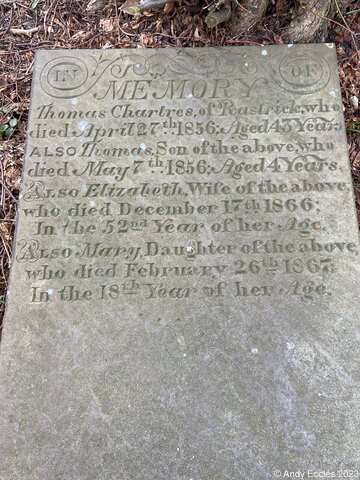 IN MEMORY OF
Thomas Chartres, of Rastrick, who
died April 27th 1856; Aged 43 Years.
ALSO Thomas, Son of the above, who
died May 7th 1856; Aged 4 Years.
Also Elizabeth, Wife of the above,
who died December 17th 1866;
In the 52nd Year of her Age.
Also Mary, Daughter of the above,
who died February 26th 1867;
In the 18th Year of her Age.
© Andy Eccles 2023